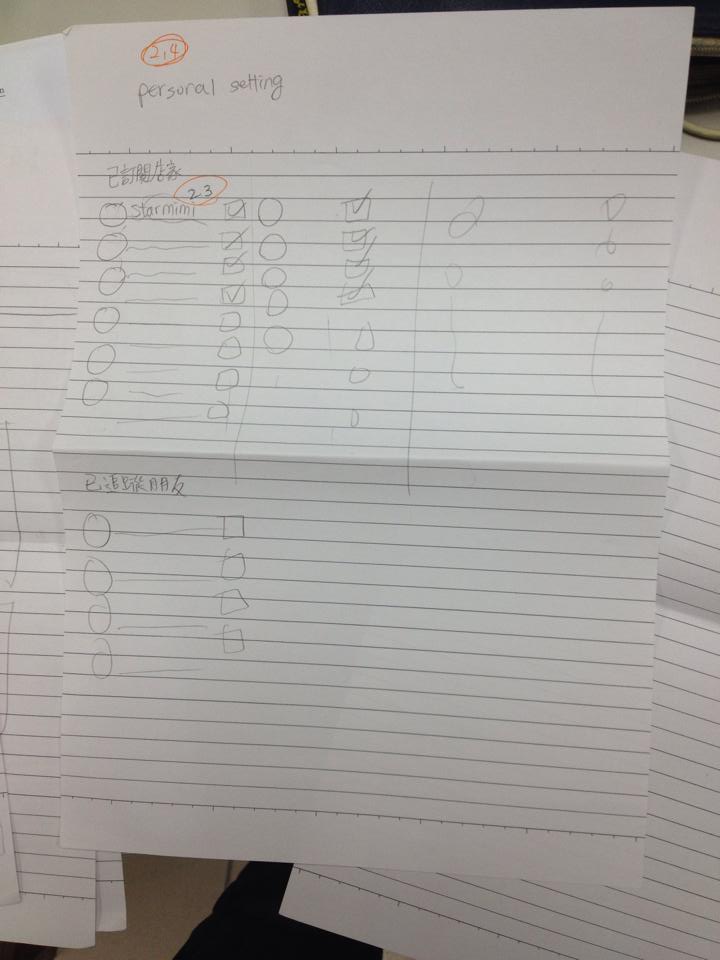 2,4
personal setting
已訂閱店家
2.3
starmimi
已追蹤朋友